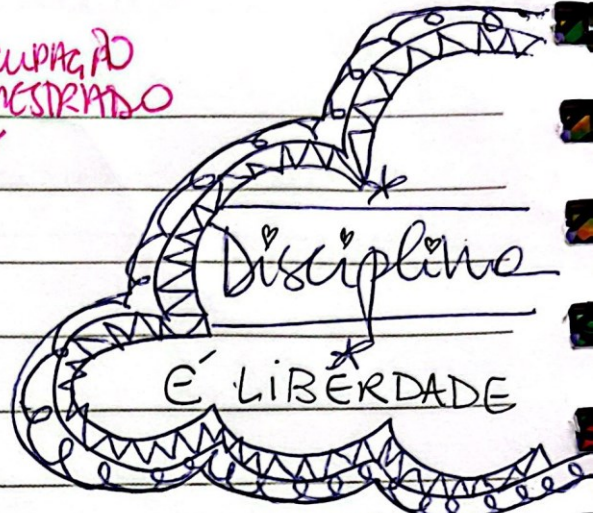 MESTRADO
Disciplina
É LIBERDADE